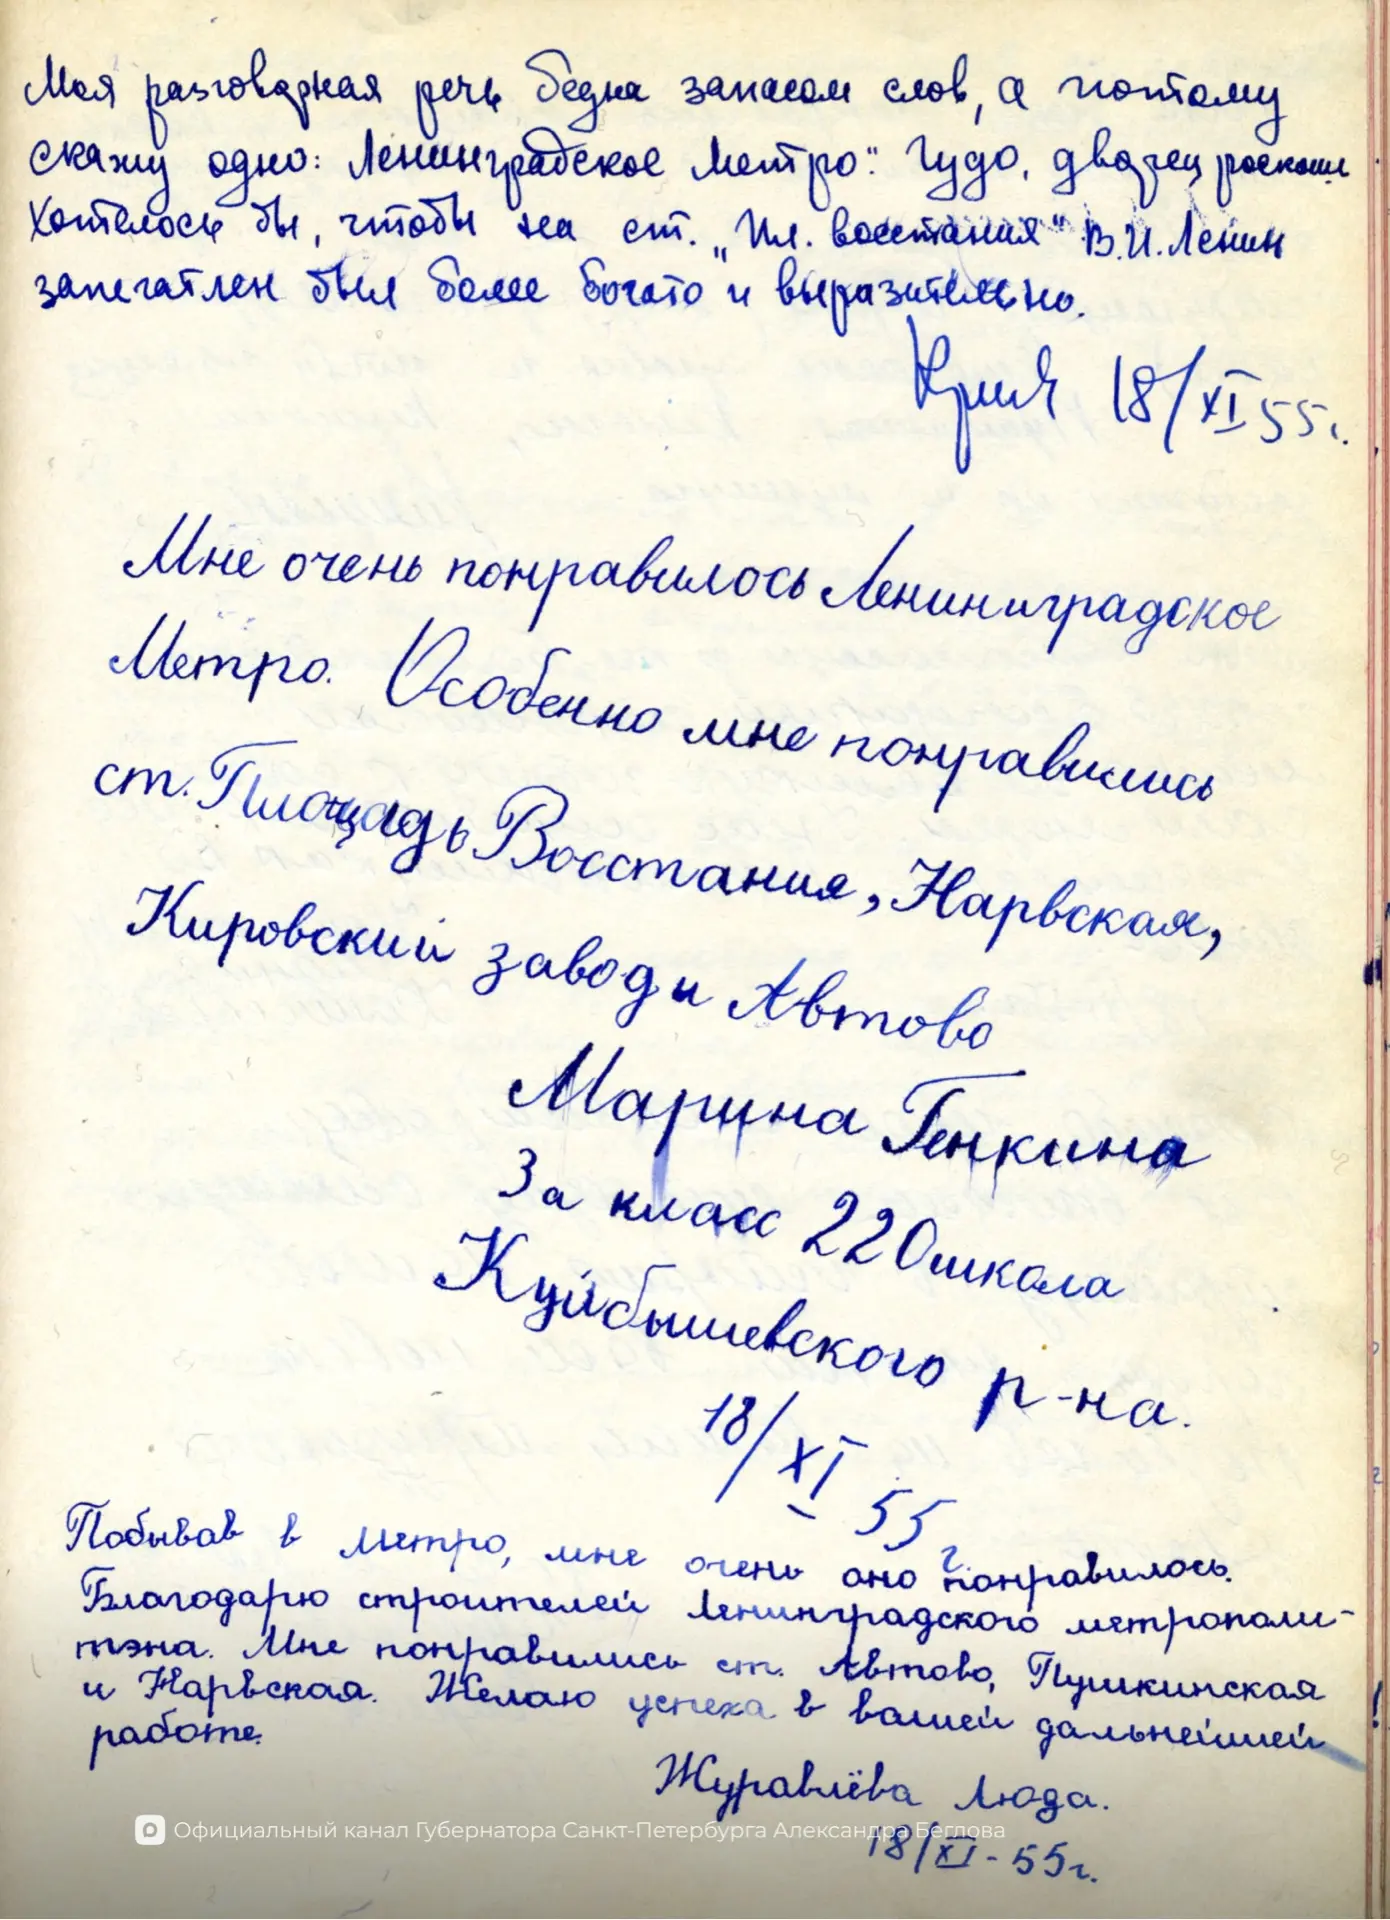 Моя разговорная речь бедна запасом слов, а поэтому
скажу одно: Ленинградское метро": Чудо, дворец роскоши
Хотелось бы, чтобы на ст. „Пл. восстания" В.И. Ленин
запечатлен был более богато и выразительно.
18/XI 55г.
Мне очень понравилось Ленининградское
Метро. Особенно мне понравились
ст. Площадь Восстания, Нарвская,
Кировский завод и Автово
Марина Генкина
3а класс 220 школа
Куйбышевского р-на.
18/XI 55 г.
Побывав в метро, мне очень оно понравилось.
Благодарю строителей Ленинградского метрополи-
тэна. Мне понравились ст. Автово, Пушкинская
и Нарвская. Желаю успеха в вашей дальнейшей
работе.
Журавлёва Люда.
Официальный канал Губернатора Санкт-Петербурга Александра Беглова
18/XI - 55г.